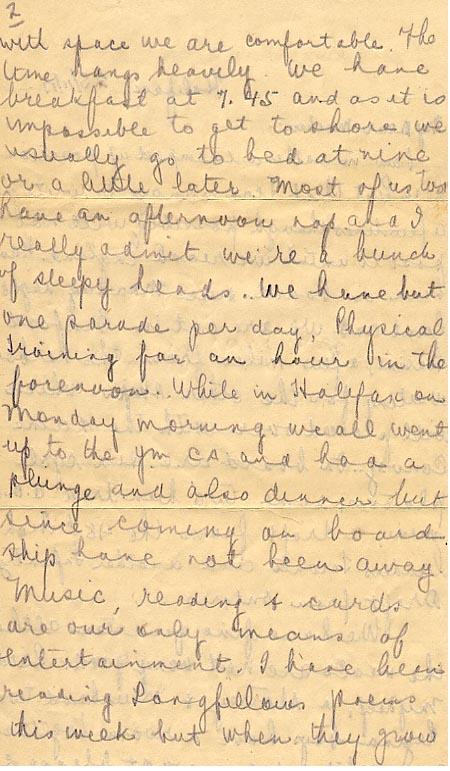 2
with space we are comfortable. The
time hangs heavily we have
breakfast at 7.45 and as it is
impossible to get to shore we
usually go to bed at nine
or a little later. Most of us too
have an afternoon nap and I
really admit we're a bunch
of sleepy heads.. We have but
one parade per day, Physical
training for an hour in the
forenoon. While in Halifax on
Monday morning we all went
up to the YM CA and had a
plunge and also dinner but
since coming on board
ship have not been away.
Music, reading & cards
are our only means of
entertainment. I have been
reading Longfellows poems
this week but when they grow